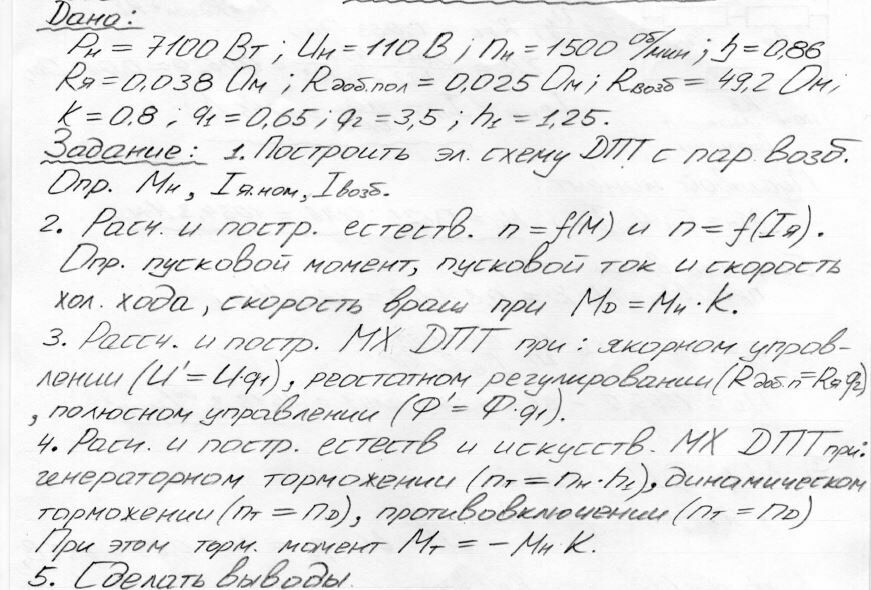 Дана:
Pн = 7100 Вт; Uн = 110 В; nн = 1500 об/мин; η = 0,86
Rя = 0,038 Ом; Rдоб.пол = 0,025 Ом; Rвозб = 49,2 Ом;
K = 0,8; q1 = 0,65; q2 = 3,5; h1 = 1,25.
Задание: 1. Построить эл. схему ДПТ с пар. возб.
Опр. Mн, Iя.ном, Iвозб.
2. Расч. и постр. естеств. n = f(M) и n = f(Iя).
Опр. пусковой момент, пусковой ток и скорость
хол. хода, скорость вращ при MD = Mн · K.
3. Рассч. и постр. МХ ДПТ при: якорном управ-
лении (U' = U·q1), реостатном регулировании (Rдоб.п = Rя q2)
, полюсном управлении (Ф' = Ф·q1).
4. Расч. и постр. естеств и искусств. МХ ДПТ при:
генераторном торможении (nт = nн · h1), динамическом
торможении (nт = nD), противовключении (nт = nD)
При этом торм. момент Mт = - Mн K.
5. Сделать выводы.